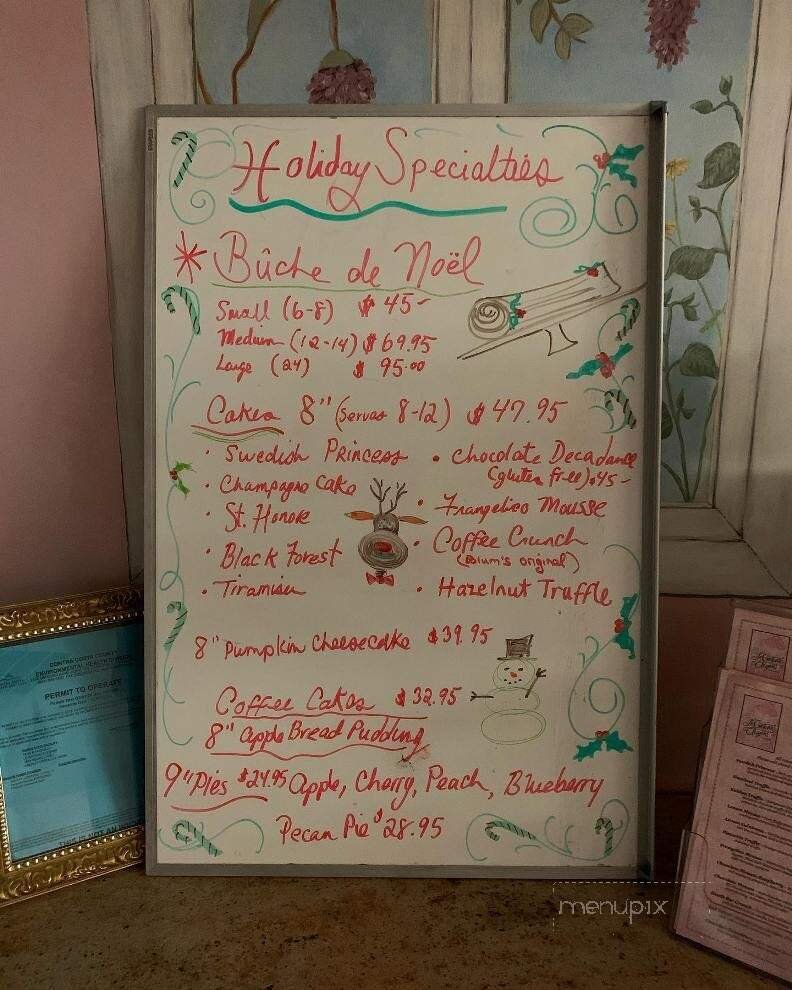 Holiday Specialties
* Bûche de Noël
Small (6-8) $45-
Medium (12-14) $69.95
Large (24) $95.00
Cakes 8" (serves 8-12) $47.95
• Swedish Princess
• Champagne Cake
• St. Honore
• Black Forest
• Tiramisu
• Chocolate Decadance
(gluten free) $45-
• Frangelico Mousse
• Coffee Crunch
(Blum's original)
• Hazelnut Truffle
8" Pumpkin Cheesecake $39.95
Coffee Cakes $32.95
8" Apple Bread Pudding
9" Pies $24.95 Apple, Cherry, Peach, Blueberry
Pecan Pie $28.95
CONTRA COSTA COUNTY
ENVIRONMENTAL HEALTH DIVISION
PERMIT TO OPERATE
menupix